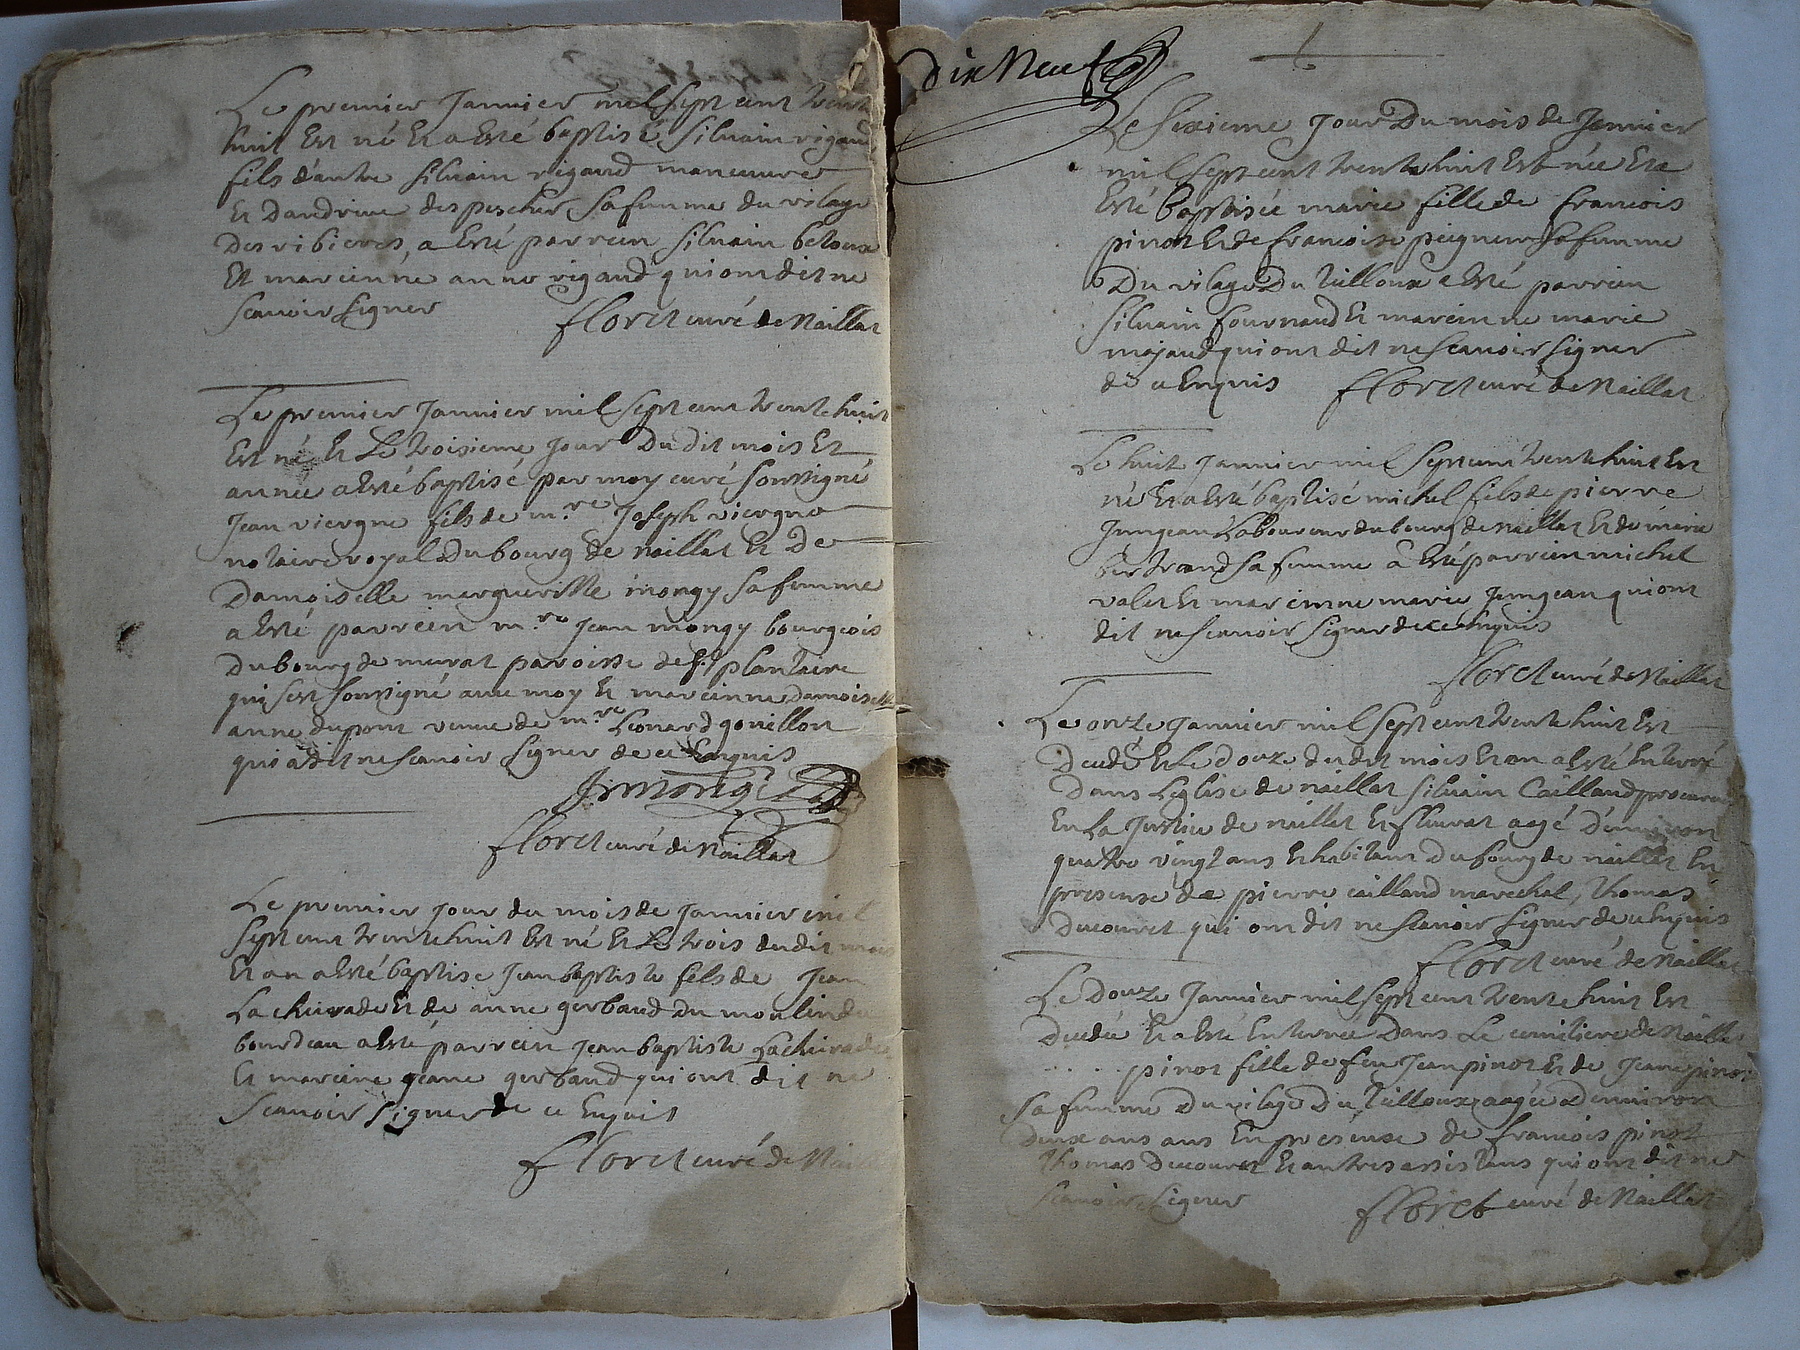 Le premier Janvier mil sept cent trente
huit Est né Et a Esté baptisé silvain rigaud
fils d'autre silvain rigaud manœuvre
Et Dandrive des peschers sa femme du vilage
des ribieres, a Esté parrein silvain betoux
Et mareinne anne rigaud qui ont dit ne
scavoir signer
floret curé de Naillat
Le premier Janvier mil sept cent trente huit
Est né Et Le troisieme jour Du dit mois Et
annee a Esté baptisé par moy curé soussigné
Jean viergne fils de m.re Joseph viergne
notaire royal Du bourg de naillat Et De
Damoiselle margueritte mongy sa femme
a Esté parrein m.re Jean mongy bourgeois
Du bourg de murat paroisse de s.t plantaire
qui s'est soussigné avec moy Et mareinne damoiselle
anne dupont veuve de m.re Leonard gouillon
qui a dit ne scavoir signer de ce Enquis
floret curé de Naillat
Le premier jour du mois de Janvier mil
sept cent trente huit Est né Et Le trois dudit mois
Et an a Esté baptisé Jean baptiste fils de Jean
La chirade Et de anne gerbaud Du moulin du
bourdeau a Esté parrein Jean baptiste Lachirade
Et mareine jeane gerbaud qui ont dit ne
scavoir signer de ce Enquis
floret curé de Naillat
dix Neuf
Le sixieme Jour Du mois de Jenvier
mil sept cent trente huit Est née Et a
Esté baptisée marie fille de francois
pinot Et de francoise peignen sa femme
Du vilage Du tilloux a Esté parrein
silvain fournaud Et mareinne marie
majaud qui ont dit ne scavoir signer
de ce Enquis floret curé de Naillat
Le huit Janvier mil sept cent trente huit Est
né Et a Esté baptisé michel fils de pierre
Jungean Laboureur du bourg de naillat Et de marie
bertrand sa femme a Esté parrein michel
valet Et mareinne marie Jungean qui ont
dit ne scavoir signer de ce Enquis
floret curé de Naillat
Le onze Janvier mil sept cent trente huit Est
Decedé Et Le douze du dit mois Et an a Esté Enterré
Dans Léglise de naillat silvain Caillaud procureur
En La Justice de naillat Et fleurat agé d'environ
quatre vingt ans Et habitant Du bourg de naillat En
presense de pierre caillaud marechal, thomas
Ducouret qui ont dit ne scavoir signer de ce Enquis
floret curé de Naillat
Le douze Janvier mil sept cent trente huit Est
Decedée Et a Esté Enterrée Dans Le cemitiere de Naillat
..... pinot fille de feu Jean pinot Et de Jeane pinot
sa femme Du vilage Du tilloux agée d'environ
deux ans ans En presense de francois pinot
thomas Ducouret Et autres assistans qui ont dit ne
scavoir signer floret curé de Naillat